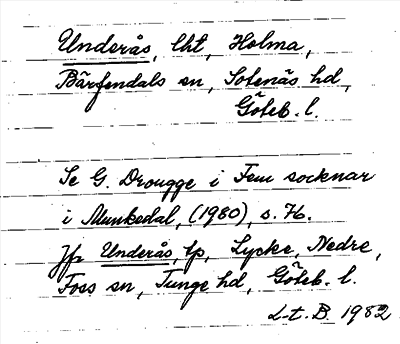 Underås, lht, Holma,
Bärfendals sn, Sotenäs hd,
Göteb. l.
Se G. Drougge i Fem socknar
i Munkedal, (1980), s. 76.
Jfr Underås, tp, Lycke, Nedre,
Foss sn, Tunge hd, Göteb. l.
L-t. B. 1982